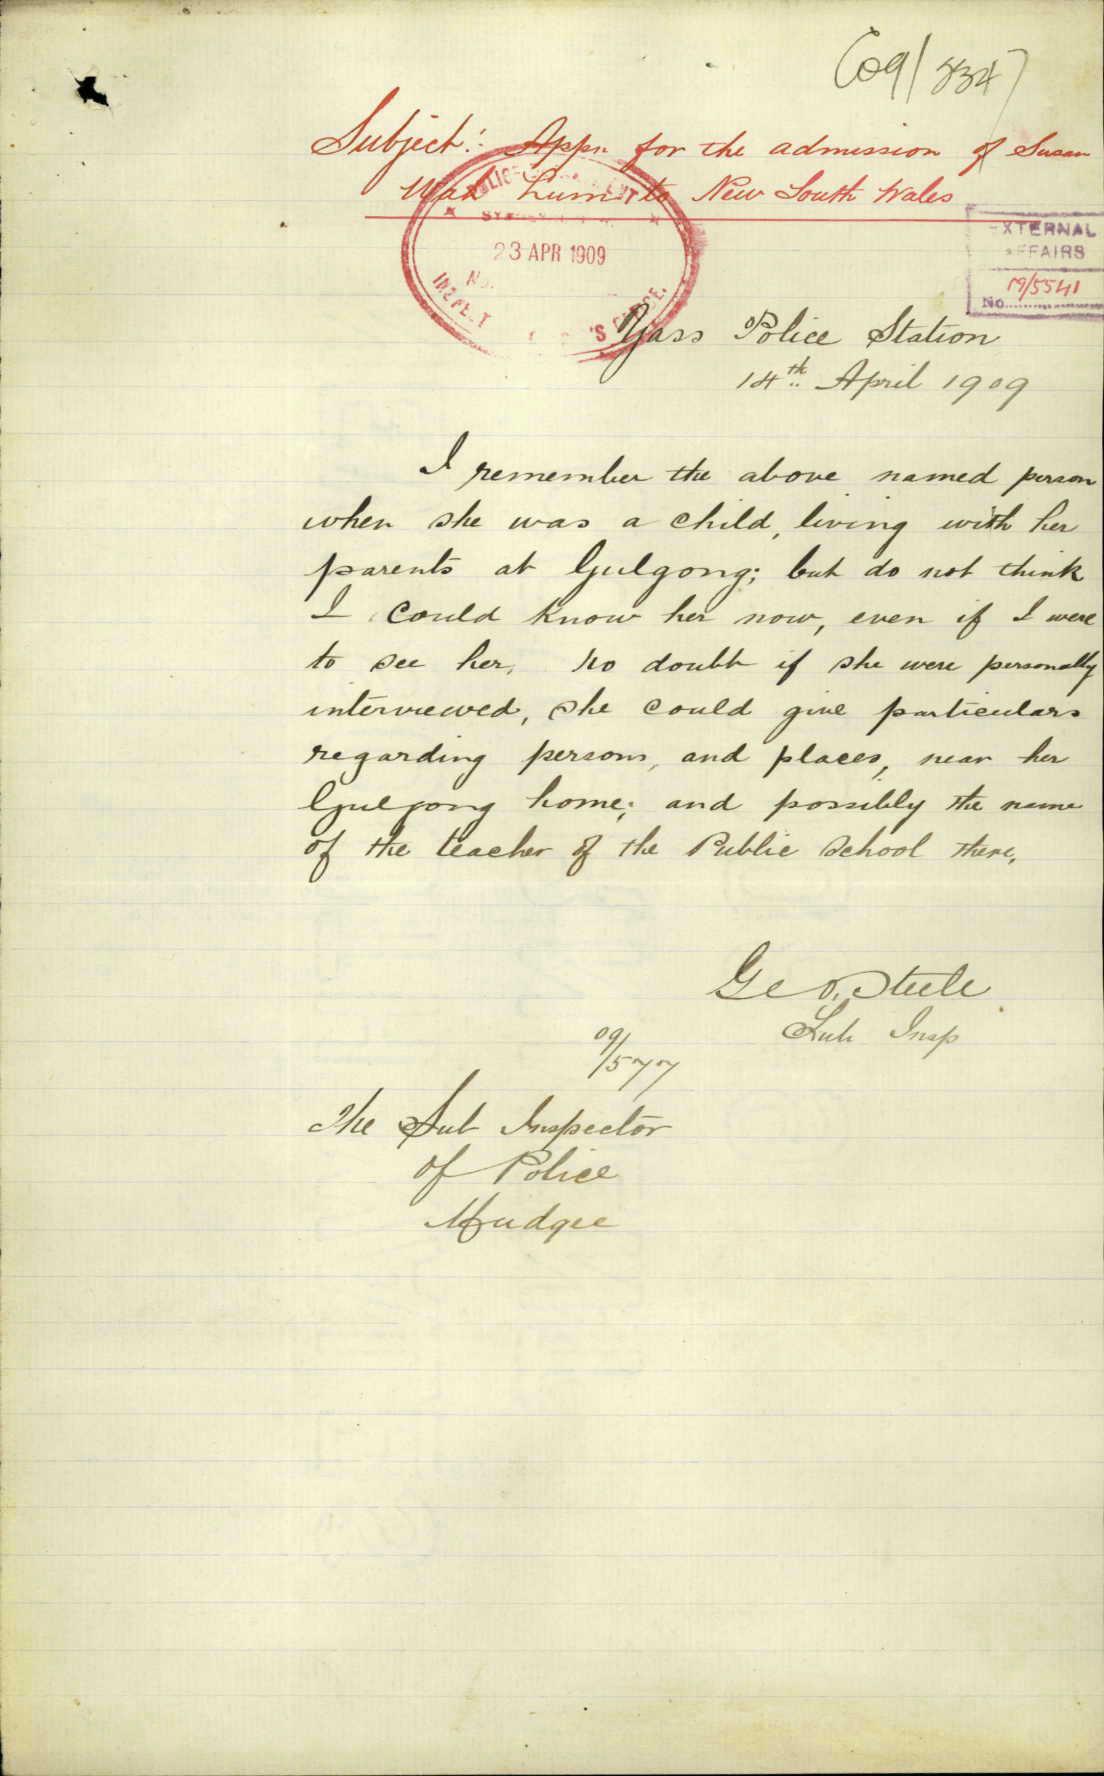 (09/334)
Subject:- Appn for the admission of Susan
Wah Lum to New South Wales
23 APR 1909
EXTERNAL
AFFAIRS
No. 09/5541
Yass Police Station
14th April 1909
I remember the above named person
when she was a child, living with her
parents at Gulgong; but do not think
I could know her now, even if I were
to see her. No doubt if she were personally
interviewed, she could give particulars
regarding persons, and places, near her
Gulgong home; and possibly the name
of the teacher of the Public School there.
Geo. Steele
Sub Insp
09/577
The Sub Inspector
of Police
Mudgee